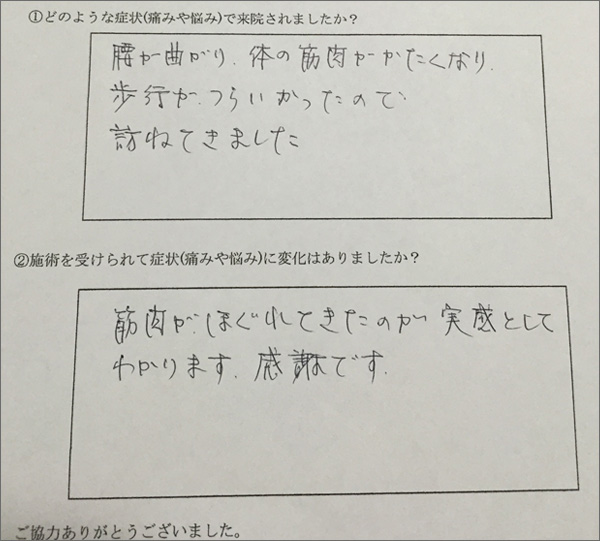 ①どのような症状(痛みや悩み)で来院されましたか?
腰が曲がり、体の筋肉がかたくなり、
歩行が、つらいかったので
訪ねてきました
②施術を受けられて症状(痛みや悩み)に変化はありましたか?
筋肉が、ほぐれてきたのが実感として
わかります、感謝です、
ご協力ありがとうございました。